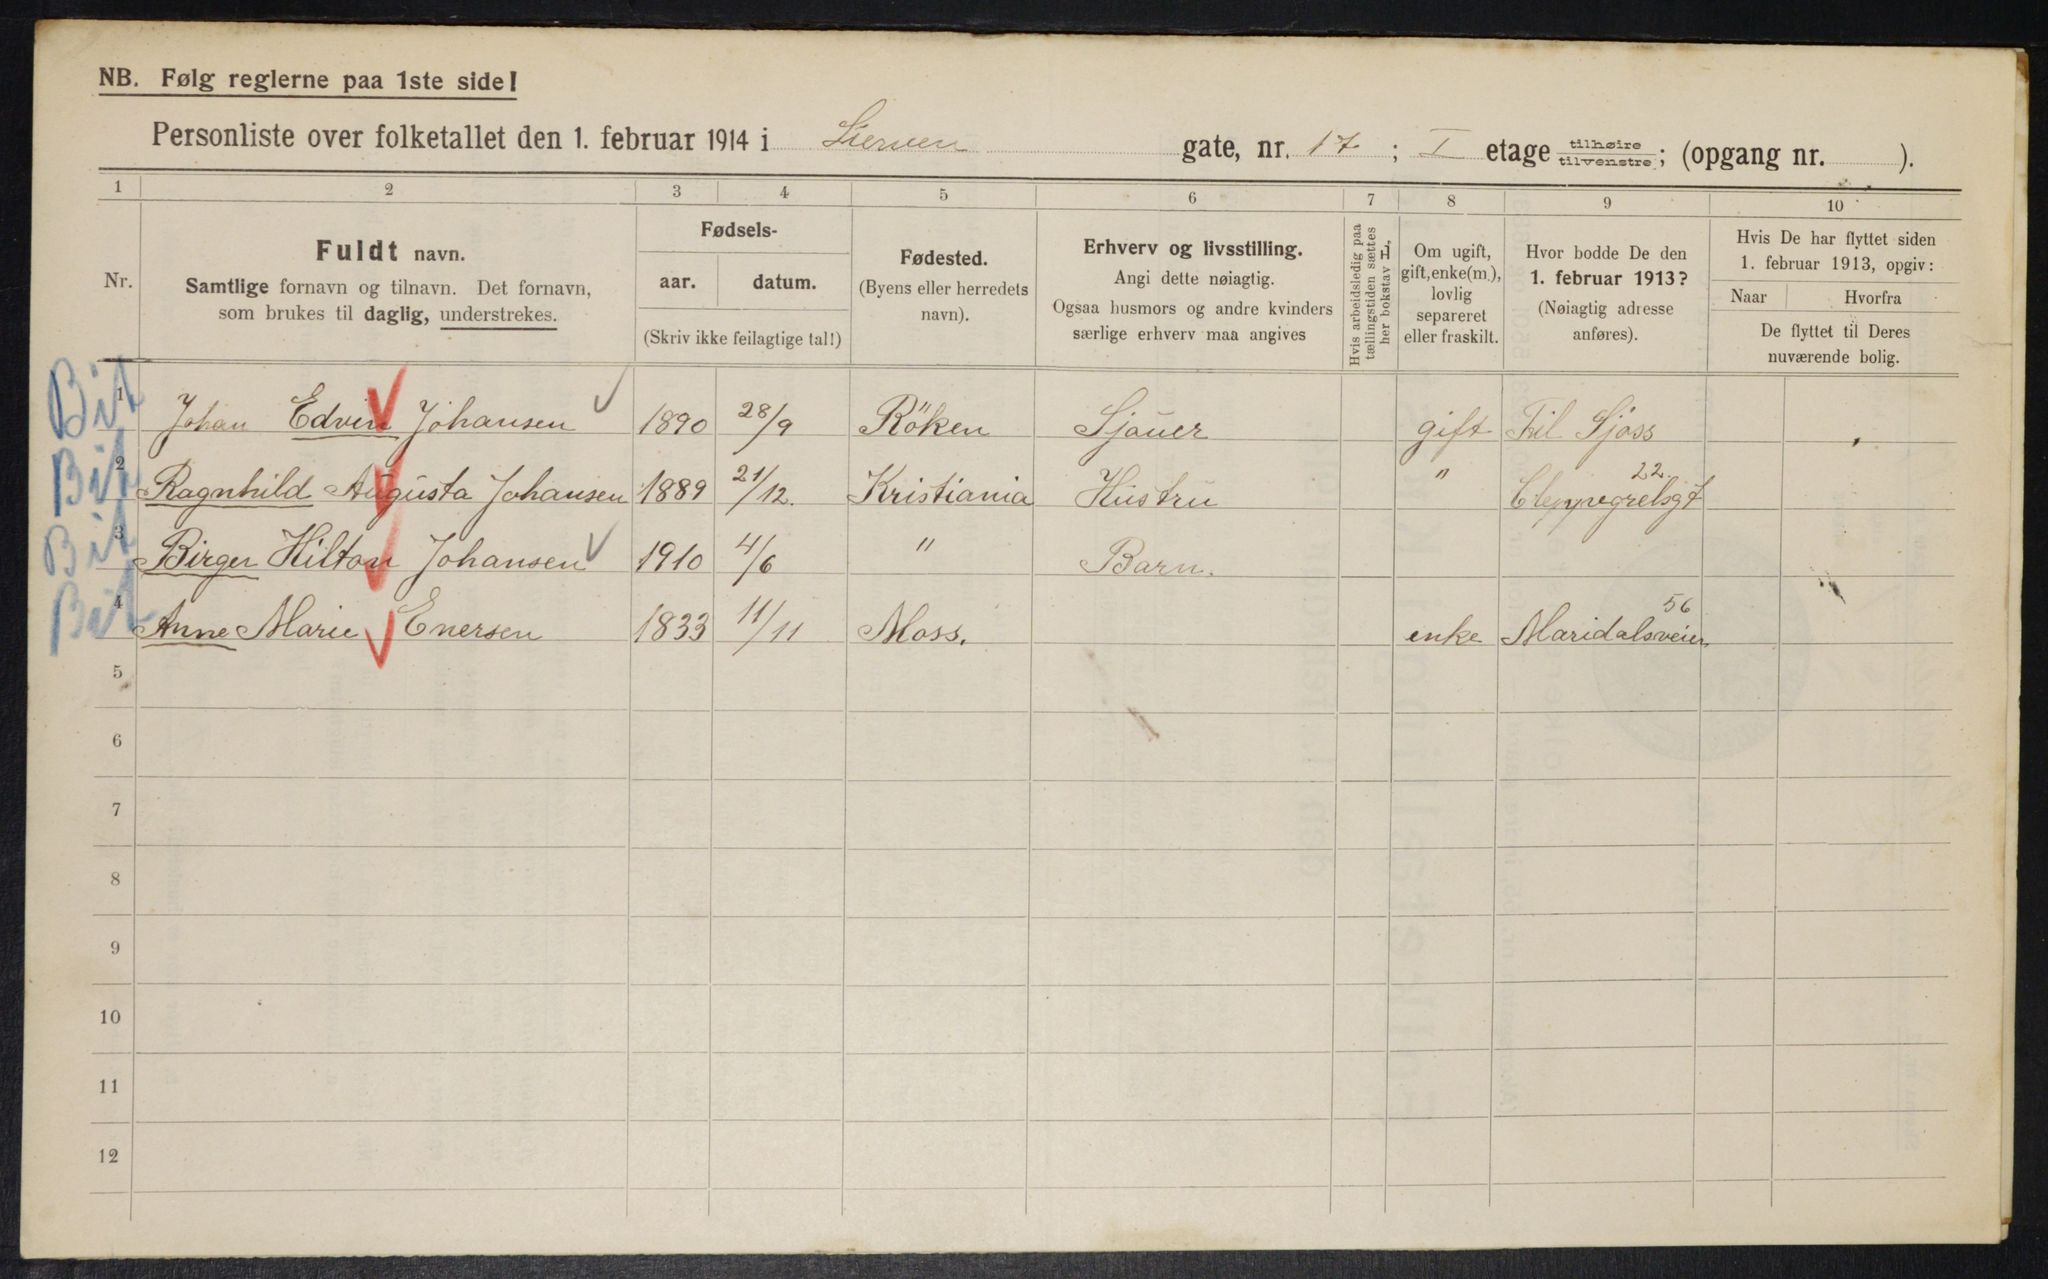 NB. Følg reglerne paa 1ste side!
Personliste over folketallet den 1. februar 1914 i Lierven gate, nr. 17 ; I etage tilhøire tilvenstre; (opgang nr. ).
1 2 3 4 5 6 7 8 9 10
Nr.
Fuldt navn.
Samtlige fornavn og tilnavn. Det fornavn,
som brukes til daglig, understrekes.
Fødsels-
aar. datum.
(Skriv ikke feilagtige tal!)
Fødested.
(Byens eller herredets
navn).
Erhverv og livsstilling.
Angi dette nøiagtig.
Ogsaa husmors og andre kvinders
særlige erhverv maa angives
Hvis arbeidsledig paa
tællingstiden sættes
her bokstav L,
Om ugift,
gift, enke(m.),
lovlig
separeret
eller fraskilt.
Hvor bodde De den
1. februar 1913?
(Nøiagtig adresse
anføres).
Hvis De har flyttet siden
1. februar 1913, opgiv:
Naar Hvorfra
De flyttet til Deres
nuværende bolig.
Bit 1 Johan Edvin Johansen 1890 28/9 Röken Sjauer gift Til Sjøss
Bit 2 Ragnhild Augusta Johansen 1889 21/12. Kristiania Hustru " 22
Bit 3 Birger Hilton Johansen 1910 4/6 " Barn.
Bit 4 Anne Marie Enersen 1833 11/11 Moss. enke Maridalsveien 56
5
6
7
8
9
10
11
12